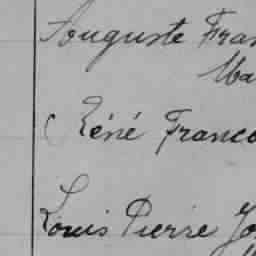 Auguste Fran
Ma
( Réné Franco
Louis Pierre Jo